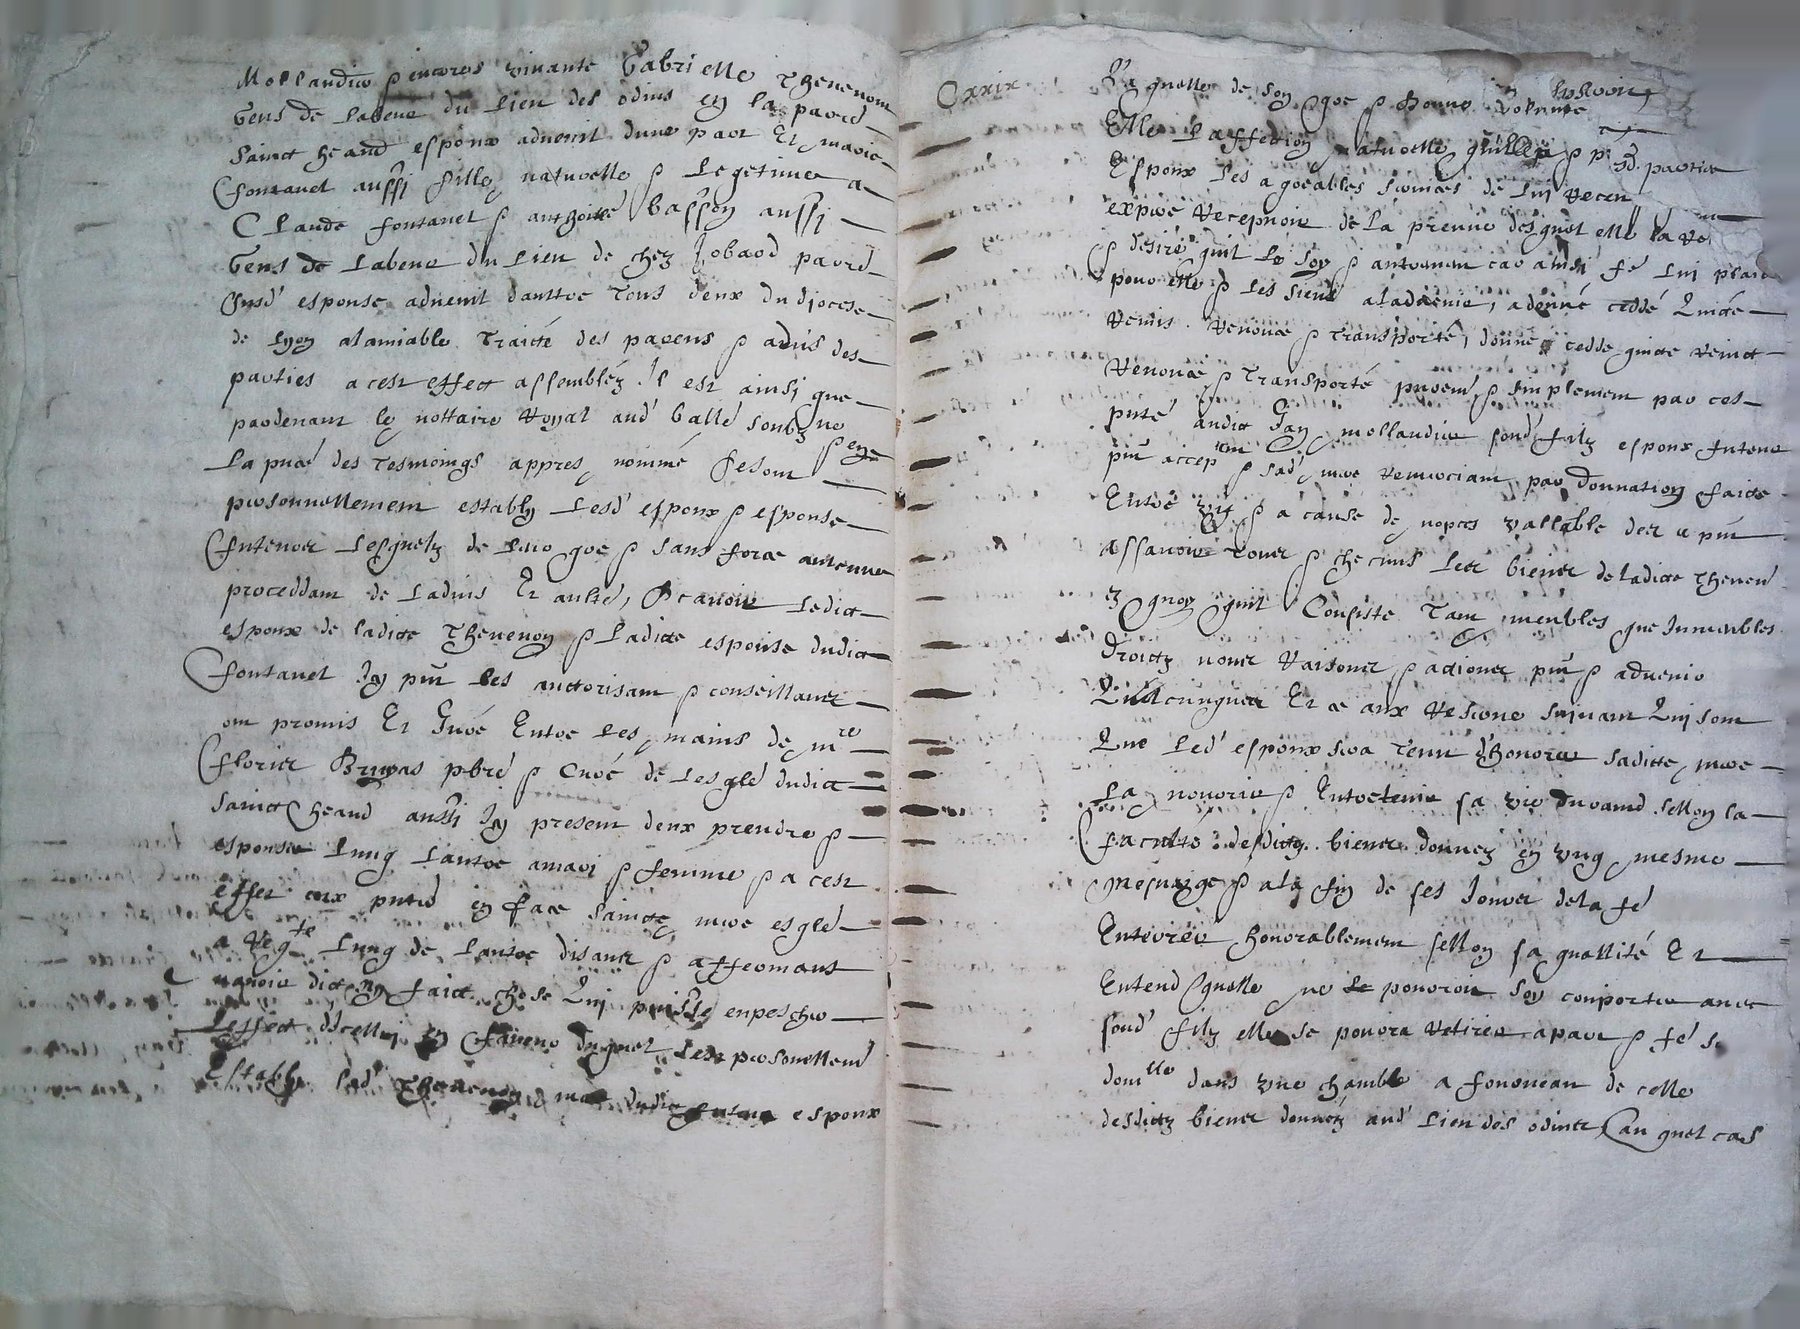 Mollandier & encores vivante Gabrielle Thevenon
Gens de labeur du lieu des odins en la parr
Sainct heand espoux advenir dune part Et marie
fontanel aussi fille naturelle & legetime a
Claude fontanel & anthoinie basson aussi
Gens de labeur du lieu de chez Jobard parr
susd' espouse advenir daultre Tous deux du diocese
de Lyon alamiable Traicté des parens & advis des
parties a cest effect assemblés Il est ainsi que
pardevant le nottaire Royal aud' Gallé soubzne
& en
la pnce des tesmoings appres nommé se sont
personnellement estably lesd' espoux & espouse
futeurs lesquelz de leur gre & sans force antenue
proceddant de ladvis Et aulte, Scavoir ledict
espoux de ladicte Thevenon & ladicte espouse dudict
fontanel Jcy pnt les auctorisant & conseillantz
ont promis Et Juré Entre les mains de mre
florier Bruyas pbre & Curé de lesglé dudict
Sainct heand aussi Jcy present deux prendre &
espouser lung lautre amari & femme & a cest
effet eux pnter en face saincte mere esglé
a Reqte lung de lautre disant & affermant
navoir dict ny faict chose Qui puisse enpescher
leffect dicelluy En faveur duquel sest personellemt
Estably lad' Thevenon mere dudict futeur espoux
Cxxix
Laquelle de son gre & bonne volonte
Elle laffection naturelle quelle & pnt
espoux les agreables services de luy receu
expere recepvoir de la preuve desquel elle la re
& desire quil le soy & autrement car ainsi fe luy plaict
pour elle & les siens aladvenir, a donné ceddé Quicté
Remis Renoncé & Transporté, donne cedde quicte Remet
Renonce & Transporté purem & simplement par ces
pnte audict Jan mollandier sond' filz espoux futeur
pnt acceptnt & sad' mere remerciant par donnation faicte
Entre vifz & a cause de nopces vallable des a pnt
assavoir tous & checuns les biens de ladicte Theven
en quoy quil Consiste Tant meubles que Inmeubles
droictz noms Raisons & actions pnt & advenir
Quelcunques Et ce aux Reserve suivant Qui sont
Que led' espoux sera tenu dhonorer sadicte mere
La nourrir & Entretenir sa vie durand sellon la
faculté desdictz biens donnez en ung mesme
mesnage & ala fin de ses Jours dela fe
Enterrer honorablement sellon sa quallité Et
Entend quelle ne le pourroit soy conporter avec
sond' filz elle se pourra retirer apart & fe s
domlle dans une chambre a fourneau de celle
desdictz biens donnéz aud' lieu des odins Au quel cas